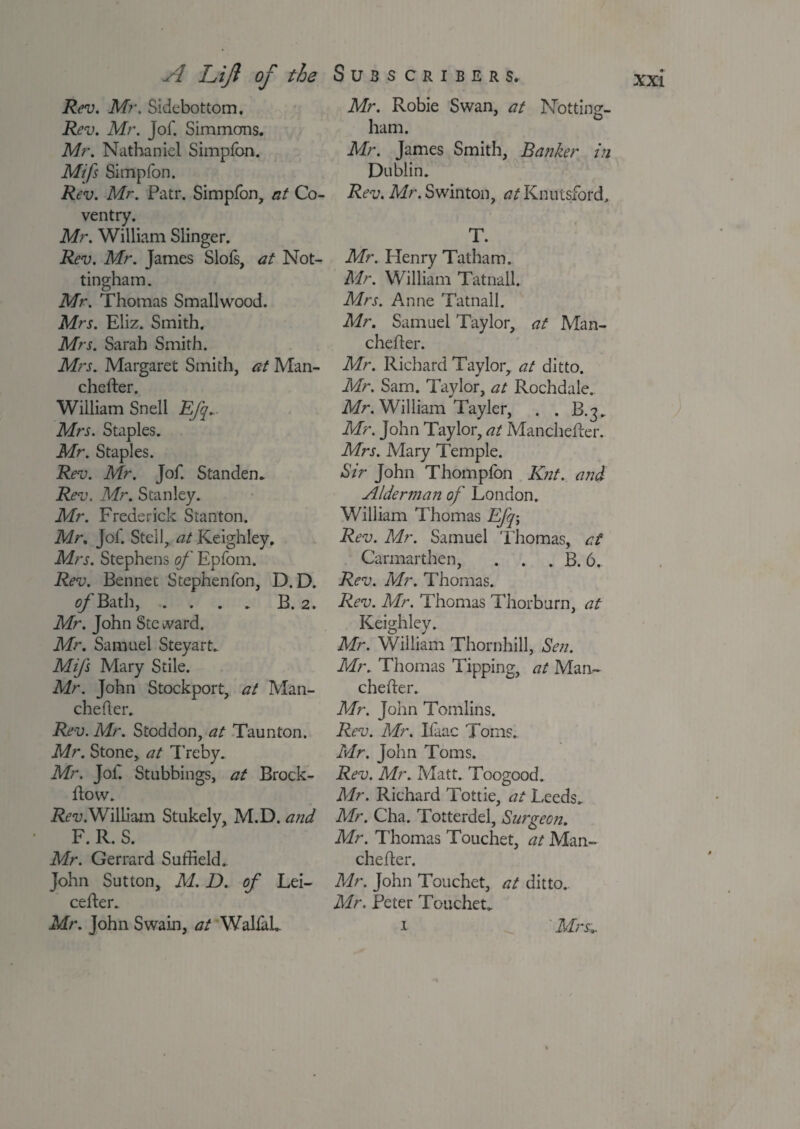 A Liſt of the SUBSCRIBERS. xxi
Rev. Mr. Sidebottom.
Rev. Mr. Joſ. Simmons.
Mr. Nathaniel Simpſon.
Miſs Simpſon.
Rev. Mr. Patr. Simpſon, at Co-
ventry.
Mr. William Slinger.
Rev. Mr. James Sloſs, at Not-
tingham.
Mr. Thomas Smallwood.
Mrs. Eliz. Smith.
Mrs. Sarah Smith.
Mrs. Margaret Smith, at Man-
cheſter.
William Snell Eſq.
Mrs. Staples.
Mr. Staples.
Rev. Mr. Joſ. Standen.
Rev. Mr. Stanley.
Mr. Frederick Stanton.
Mr. Joſ. Stell, at Keighley.
Mrs. Stephens of Epſom.
Rev. Bennet Stephenſon, D.D.
of Bath, . . . . B. 2.
Mr. John Steward.
Mr. Samuel Steyart.
Miſs Mary Stile.
Mr. John Stockport, at Man-
cheſter.
Rev. Mr. Stoddon, at Taunton.
Mr. Stone, at Treby.
Mr. Joſ. Stubbings, at Brock-
ſtow.
Rev. William Stukely, M.D. and
F. R. S.
Mr. Gerrard Suffield.
John Sutton, M. D. of Lei-
ceſter.
Mr. John Swain, at Walſal.
Mr. Robie Swan, at Notting-
ham.
Mr. James Smith, Banker in
Dublin.
Rev. Mr. Swinton, at Knutsford.
T.
Mr. Henry Tatham.
Mr. William Tatnall.
Mrs. Anne Tatnall.
Mr. Samuel Taylor, at Man-
cheſter.
Mr. Richard Taylor, at ditto.
Mr. Sam. Taylor, at Rochdale.
Mr. William Tayler, . . B.3.
Mr. John Taylor, at Mancheſter.
Mrs. Mary Temple.
Sir John Thompſon Knt. and
Alderman of London.
William Thomas Eſq;
Rev. Mr. Samuel Thomas, at
Carmarthen, . . . B. 6.
Rev. Mr. Thomas.
Rev. Mr. Thomas Thorburn, at
Keighley.
Mr. William Thornhill, Sen.
Mr. Thomas Tipping, at Man-
cheſter.
Mr. John Tomlins.
Rev. Mr. Iſaac Toms.
Mr. John Toms.
Rev. Mr. Matt. Toogood.
Mr. Richard Tottie, at Leeds.
Mr. Cha. Totterdel, Surgeon.
Mr. Thomas Touchet, at Man-
cheſter.
Mr. John Touchet, at ditto.
Mr. Peter Touchet.
1 Mrs.